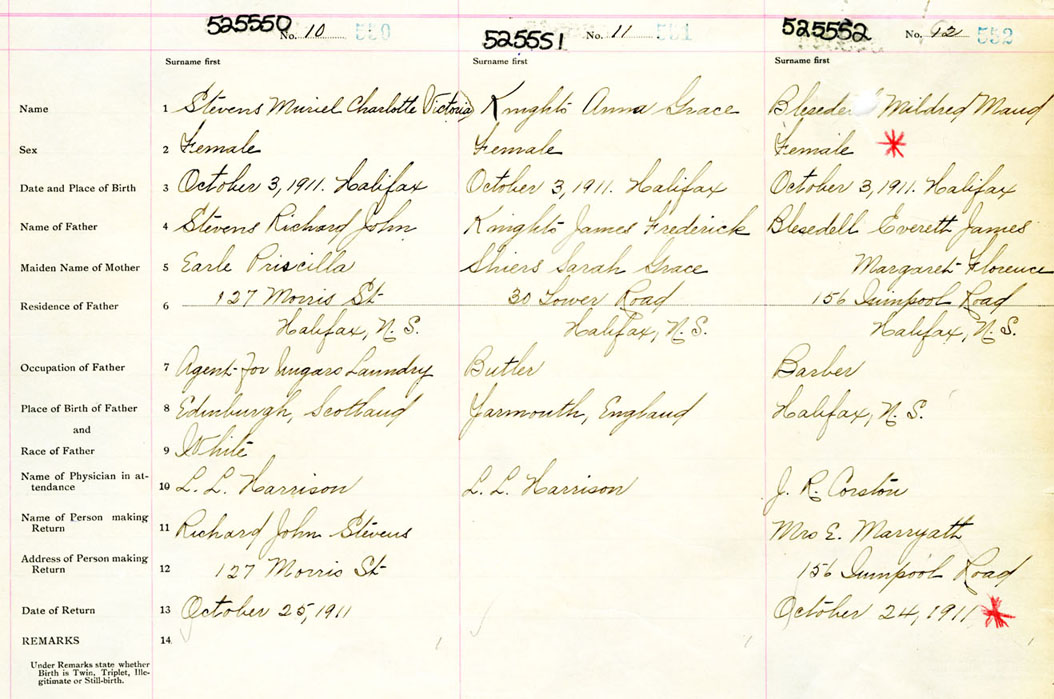 525550 No. 10 550
525551 No. 11 551
525552 No. 12 552
Surname first Surname first Surname first
Name 1 Stevens Muriel Charlotte (Victoria) Knights Anna Grace Blesedell Mildred Maud
Sex 2 Female Female Female
Date and Place of Birth 3 October 3, 1911. Halifax October 3, 1911. Halifax October 3, 1911. Halifax
Name of Father 4 Stevens Richard John Knights James Frederick Blesedell Everett James
Maiden Name of Mother 5 Earle Priscilla Shiers Sarah Grace Margaret Florence
Residence of Father 6 127 Morris St 30 Tower Road 156 Road
Halifax, N. S. Halifax, N. S. Halifax, N. S.
Occupation of Father 7 Agent for Ungars Laundry Butler Barber
Place of Birth of Father 8 Edinburgh, Scotland Yarmouth, England Halifax, N. S.
and
Race of Father 9 White
Name of Physician in attendance 10 L. L. Harrison L. L. Harrison J. R. Corston
Name of Person making Return 11 Richard John Stevens Mrs E. Marryatt
Address of Person making Return 12 127 Morris St 156 Road
Date of Return 13 October 25, 1911 October 24, 1911
REMARKS 14
Under Remarks state whether
Birth is Twin, Triplet, Ille-
gitimate or Still-birth.